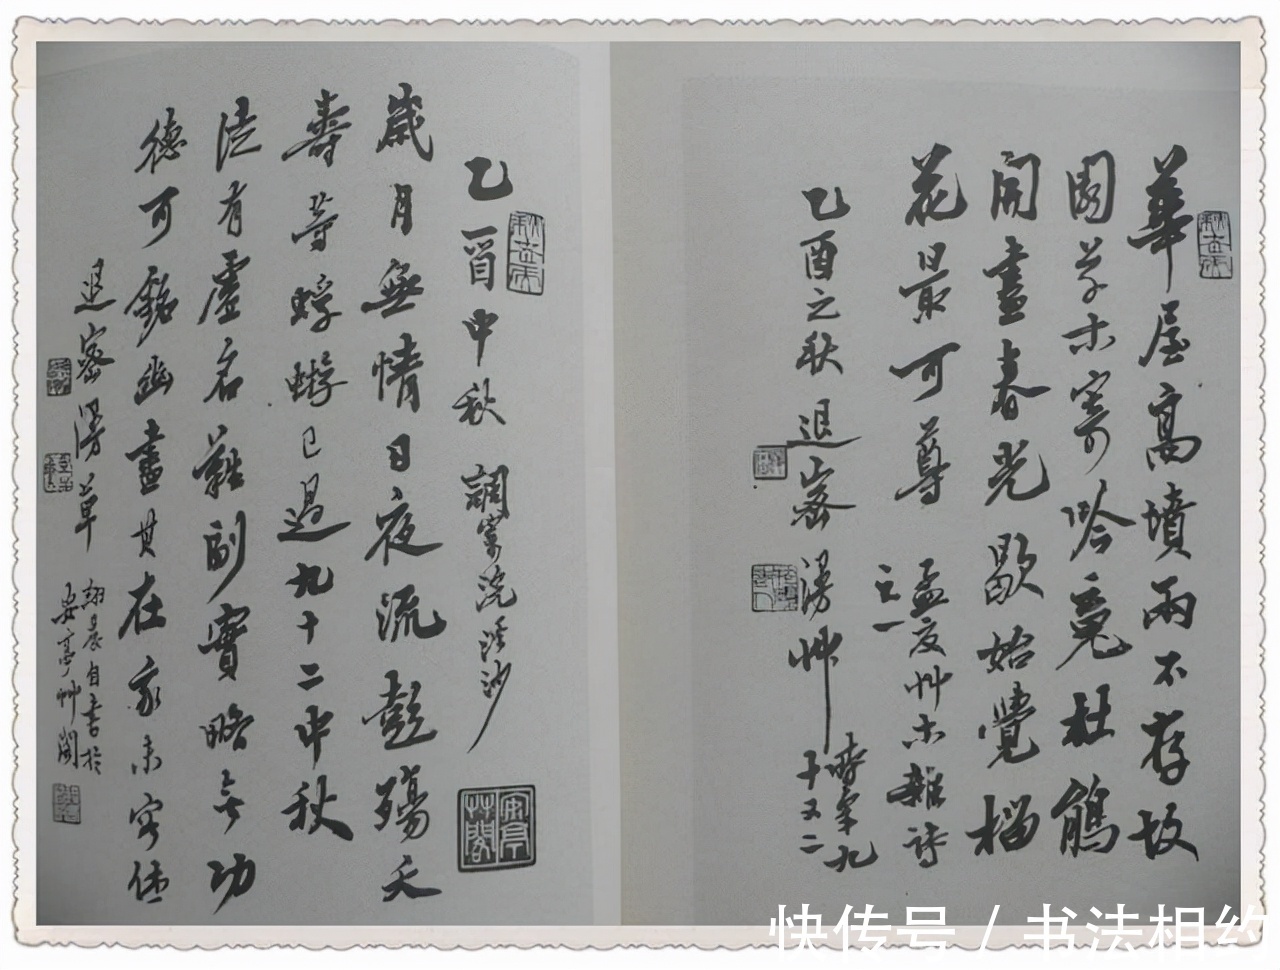 華屋高墳兩不存故
園草木寄吟魂杜鵑
開盡春光歇始覺榴
花最可尊
孟度艸木雜詩
之一
乙酉之秋退密漫艸
時年九
十又二
乙酉中秋 調寄浣溪沙
歲月無情日夜流彭殤夭
壽等蜉蝣已過九十二中秋
浪有虛名難副實略無功
德可銘幽盡其在我未容休
退密漫草
翊晨自書於
安亭艸閣
安亭
艸閣
快传号 / 书法相约